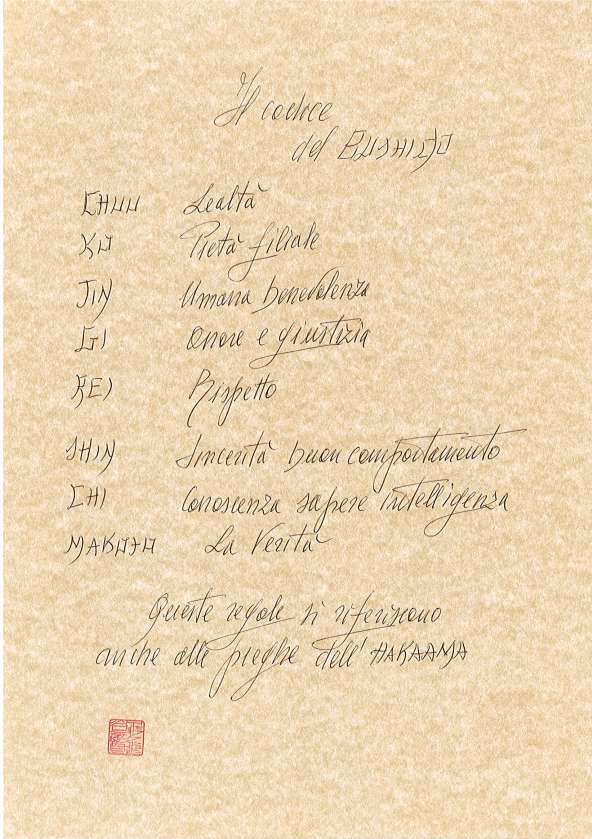 Il codice
del BUSHIDO
CHUU Lealtà
KO Pietà filiale
JIN Umana benevolenza
GI Onore e giustizia
REI Rispetto
SHIN Sincerità buon comportamento
CHI Conoscenza sapere intelligenza
MAKOTO La Verità
Queste regole si riferiscono
anche alle pieghe dell' HAKAAMA